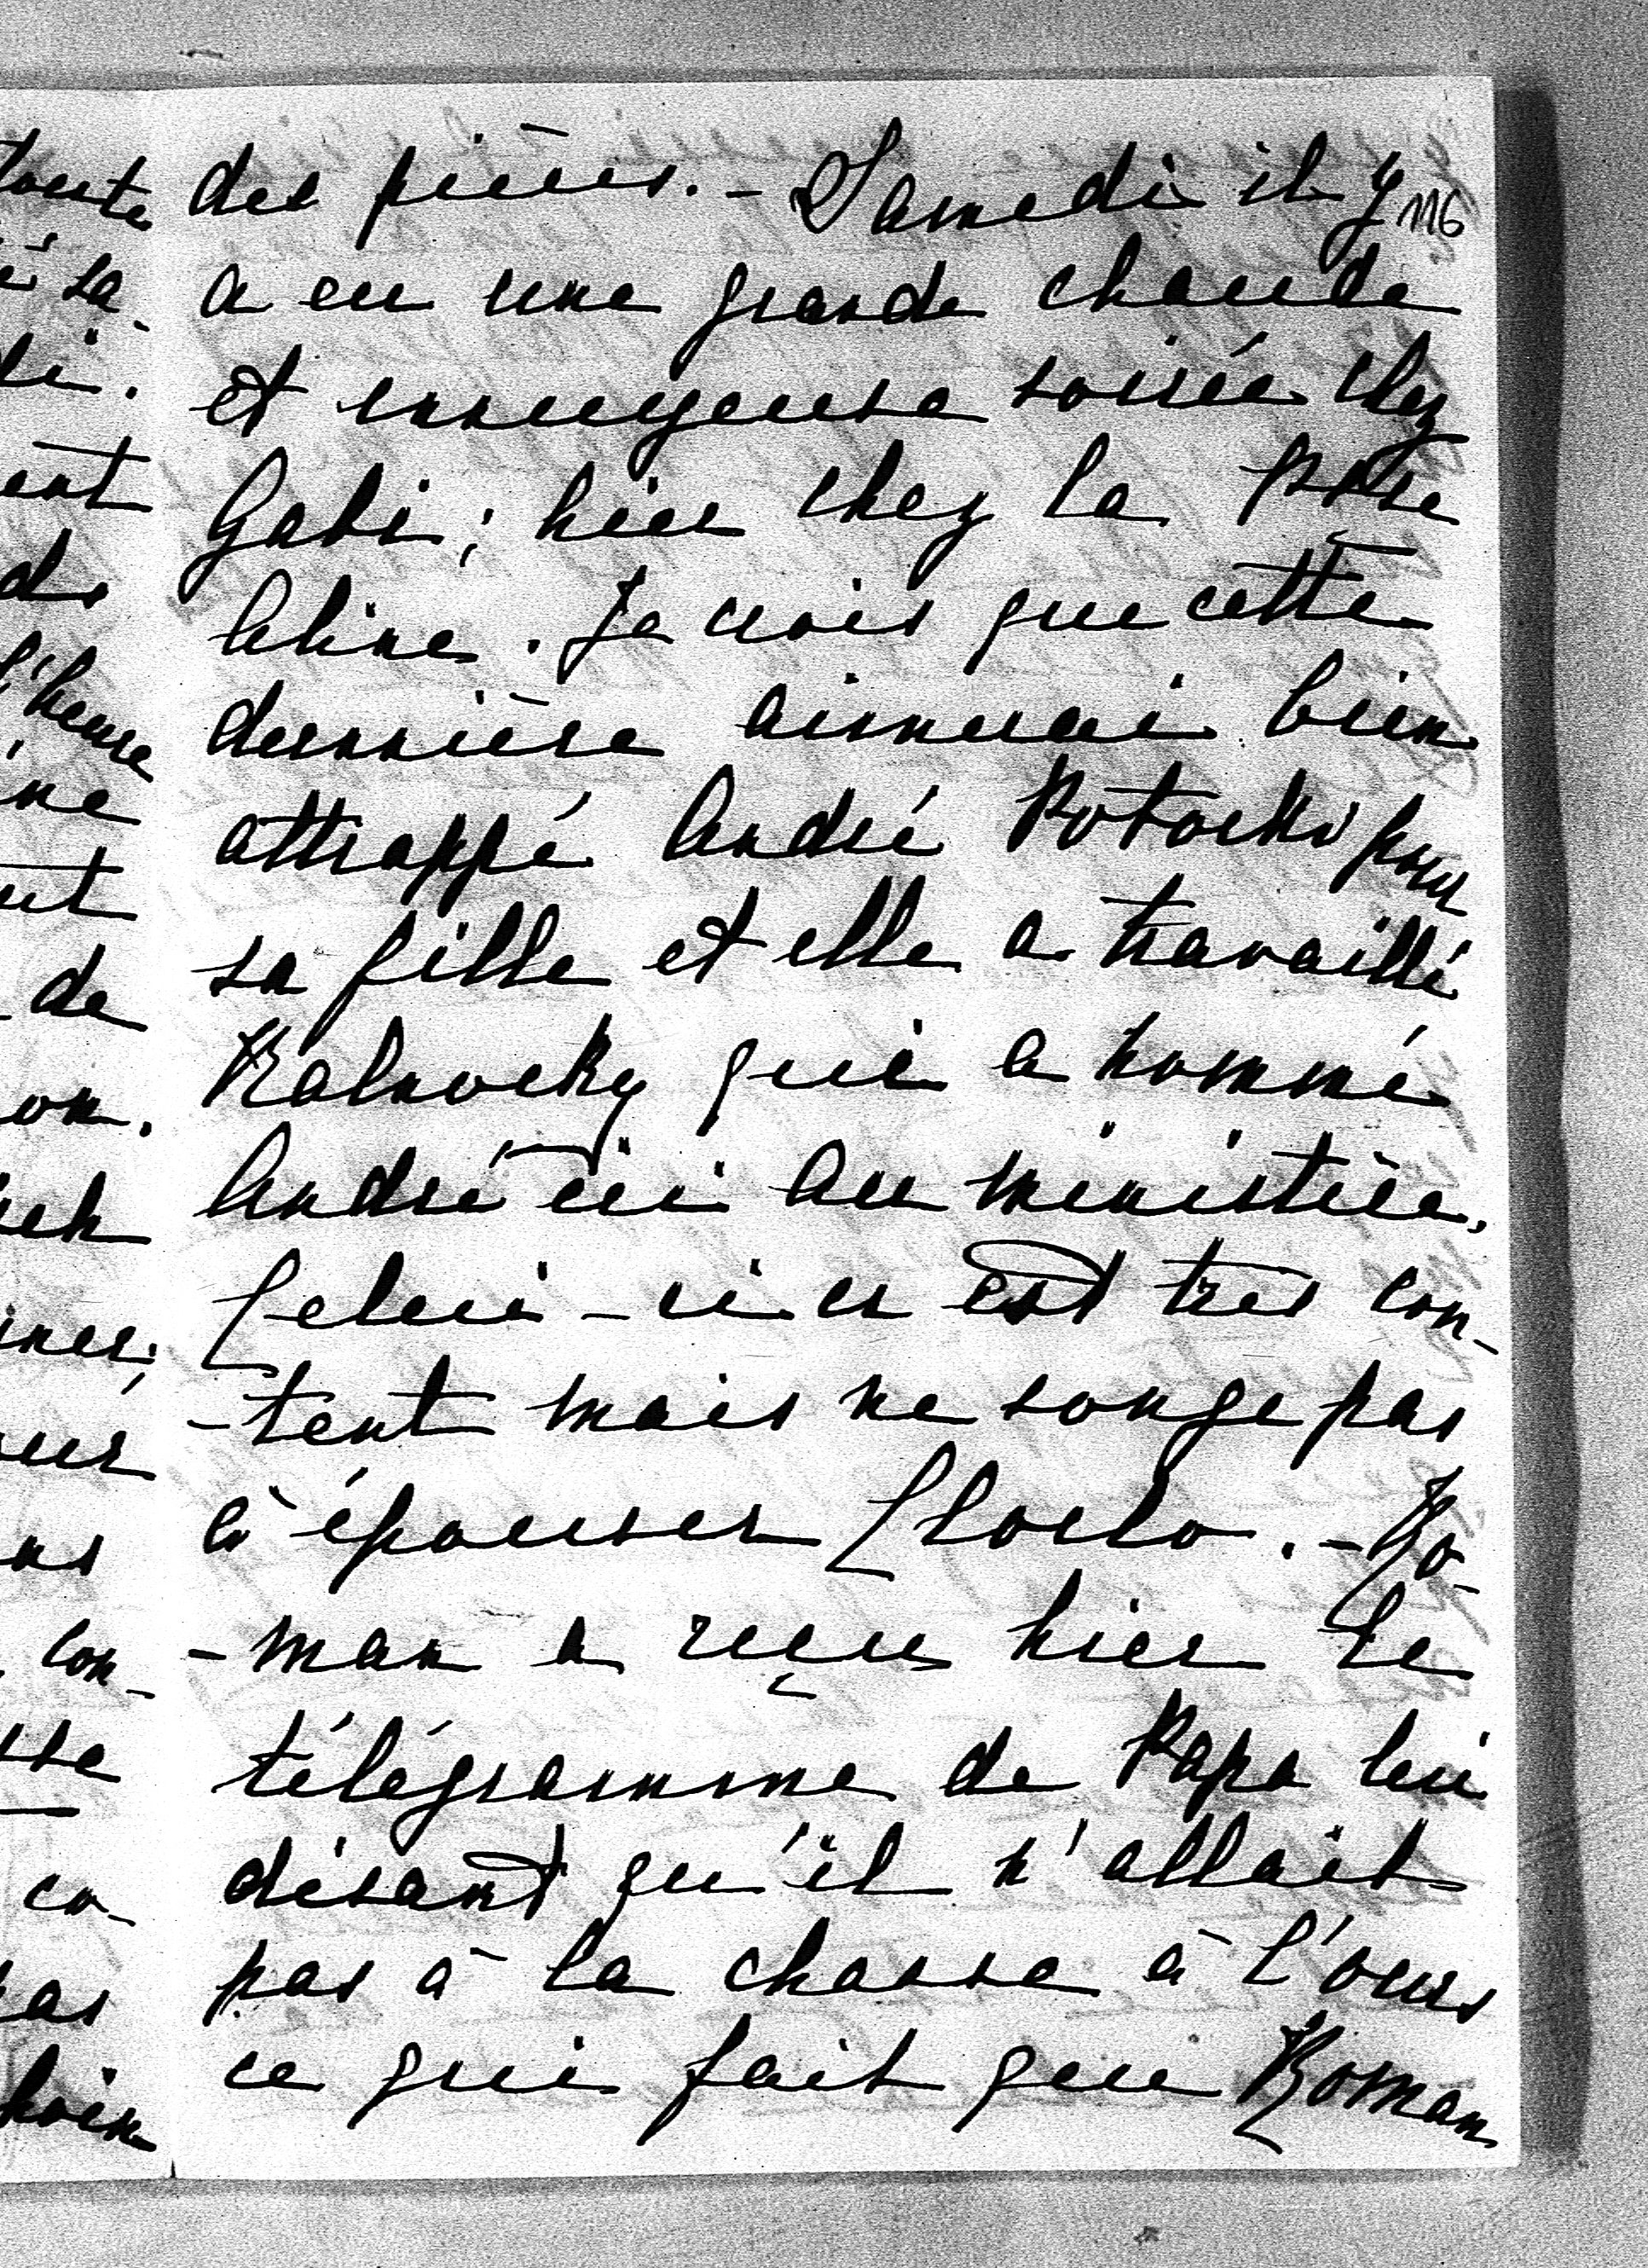 toute
à sa
di.
ent
de
l'heure
ine
ut
de
on.
iner,
ens
con-
sse
co-
pas
des pièces. - Samedi il y 116
a eu une grande chaude
et ennuyeuse soirée chez
Gabi; hier chez la Psse
Aline. Je crois que cette
dernière aimerai bien
attrappé André Potocki pour
sa fille et elle a travaillé
Kalnocky qui a nommé
André ici au ministère.
Celui-ci en est très con-
-tent mais ne songe pas
à épouser Cloclo. - Ro-
-man a reçu hier le
télégramme de Papa lui
disant qu'il n'allait
pas à la chasse à l'ours
ce qui fait que Roman